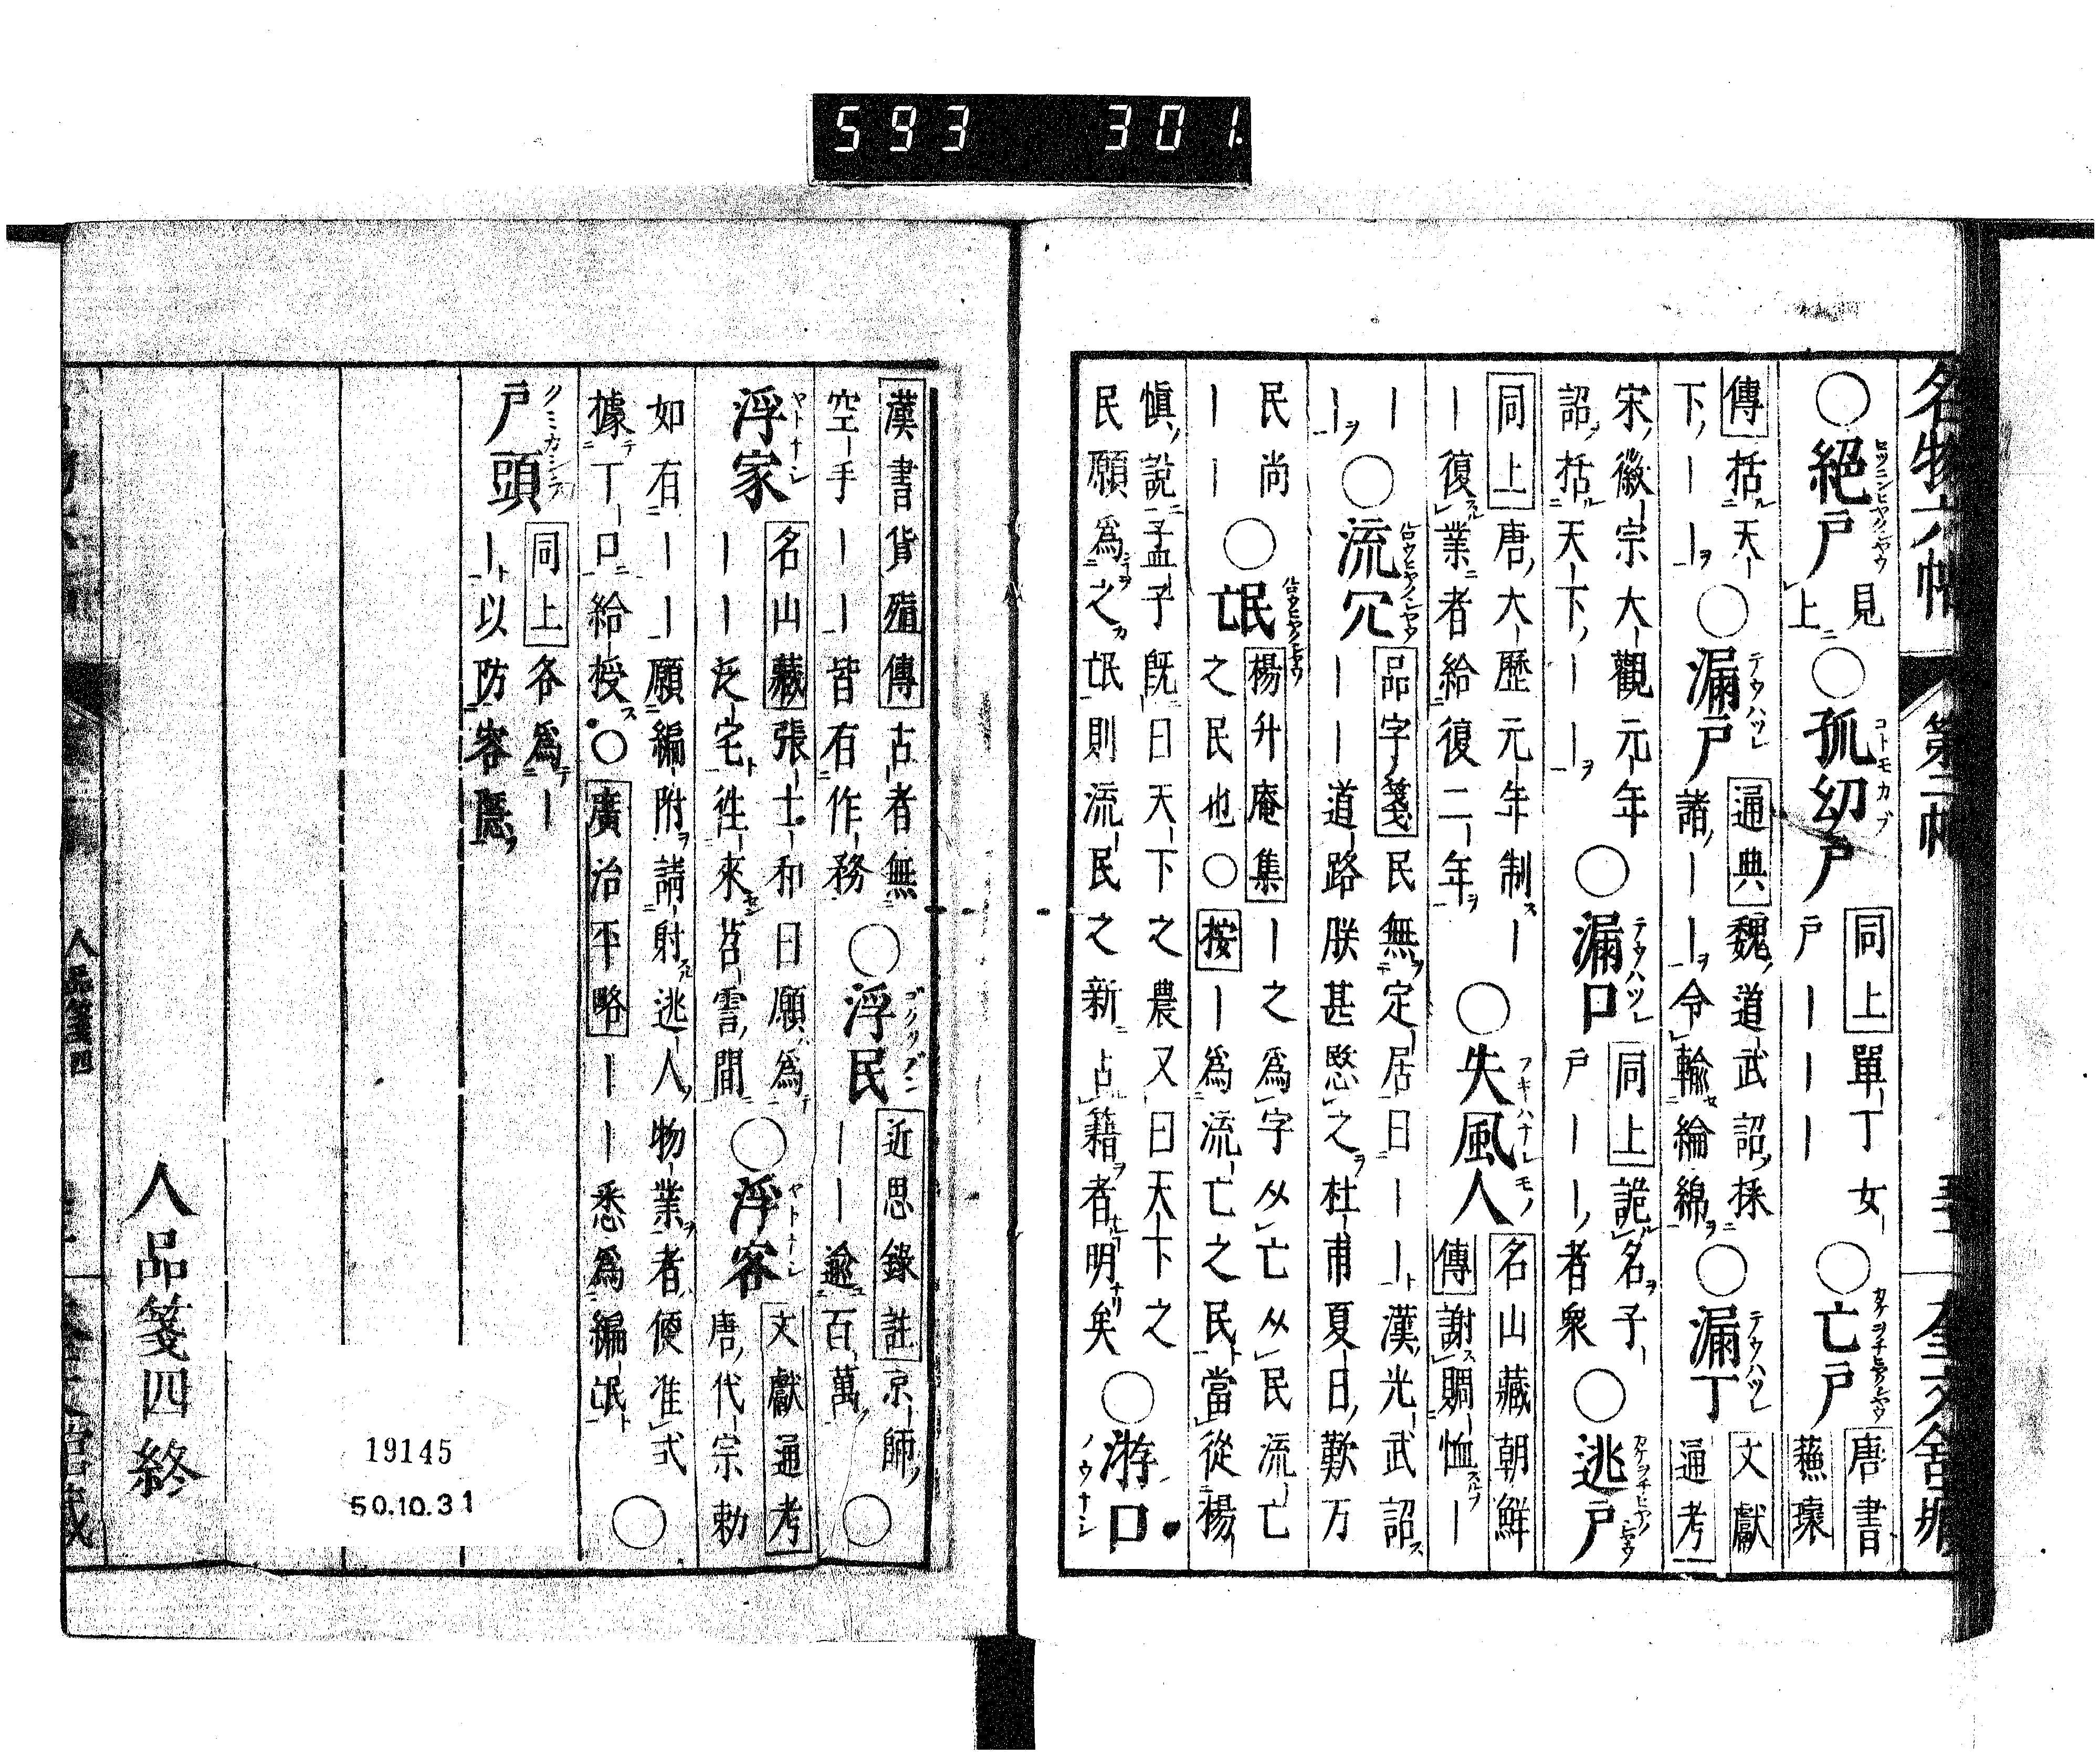 593 301
名物六帖 第二帖
○絕戸 見上 ○孤幼戸 同上 單丁女戸丨丨丨 ○亡戸 唐書蘓瓌
傳 括天下丨丨 ○漏戸 通典 魏道武詔採諸丨丨令輸綸綿 ○漏丁 文獻通考
宋徽宗大觀元年詔括天下丨丨 ○漏口 同上 詭名子戸丨丨者衆 ○逃戸
同上 唐大歷元年制丨丨復業者給復二年 ○失風人 名山藏朝鮮傳 謝賜恤丨
丨丨 ○流冗 品字箋 民無定居曰丨丨漢光武詔丨丨道路朕甚愍之杜甫夏日歎万
民尚丨丨 ○氓 楊升庵集 丨之為字从亡从民流亡之民也○按丨為流亡之民當從楊
愼說孟子旣曰天下之農又曰天下之民願為之氓則流民之新占籍者明矣 ○游口
漢書貨殖傳 古者無空手丨丨皆有作務 ○浮民 近思錄註 京師丨丨逾百萬 ○
浮家 名山藏 張士和曰願為丨丨泛宅徃來苕霅間 ○浮客 文獻通考 唐代宗勅
如有丨丨願編附請射逃人物業者便准式據丁口給授○廣治平略 丨丨悉為編氓 ○
戸頭 同上 各為丨丨以防容隱
人品箋四終
人品箋四
19145
50.10.31